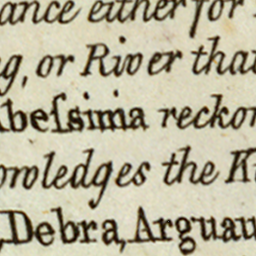 ance either for
g, or River that
beſsima reckon
owledges the K
, Debra, Arguau